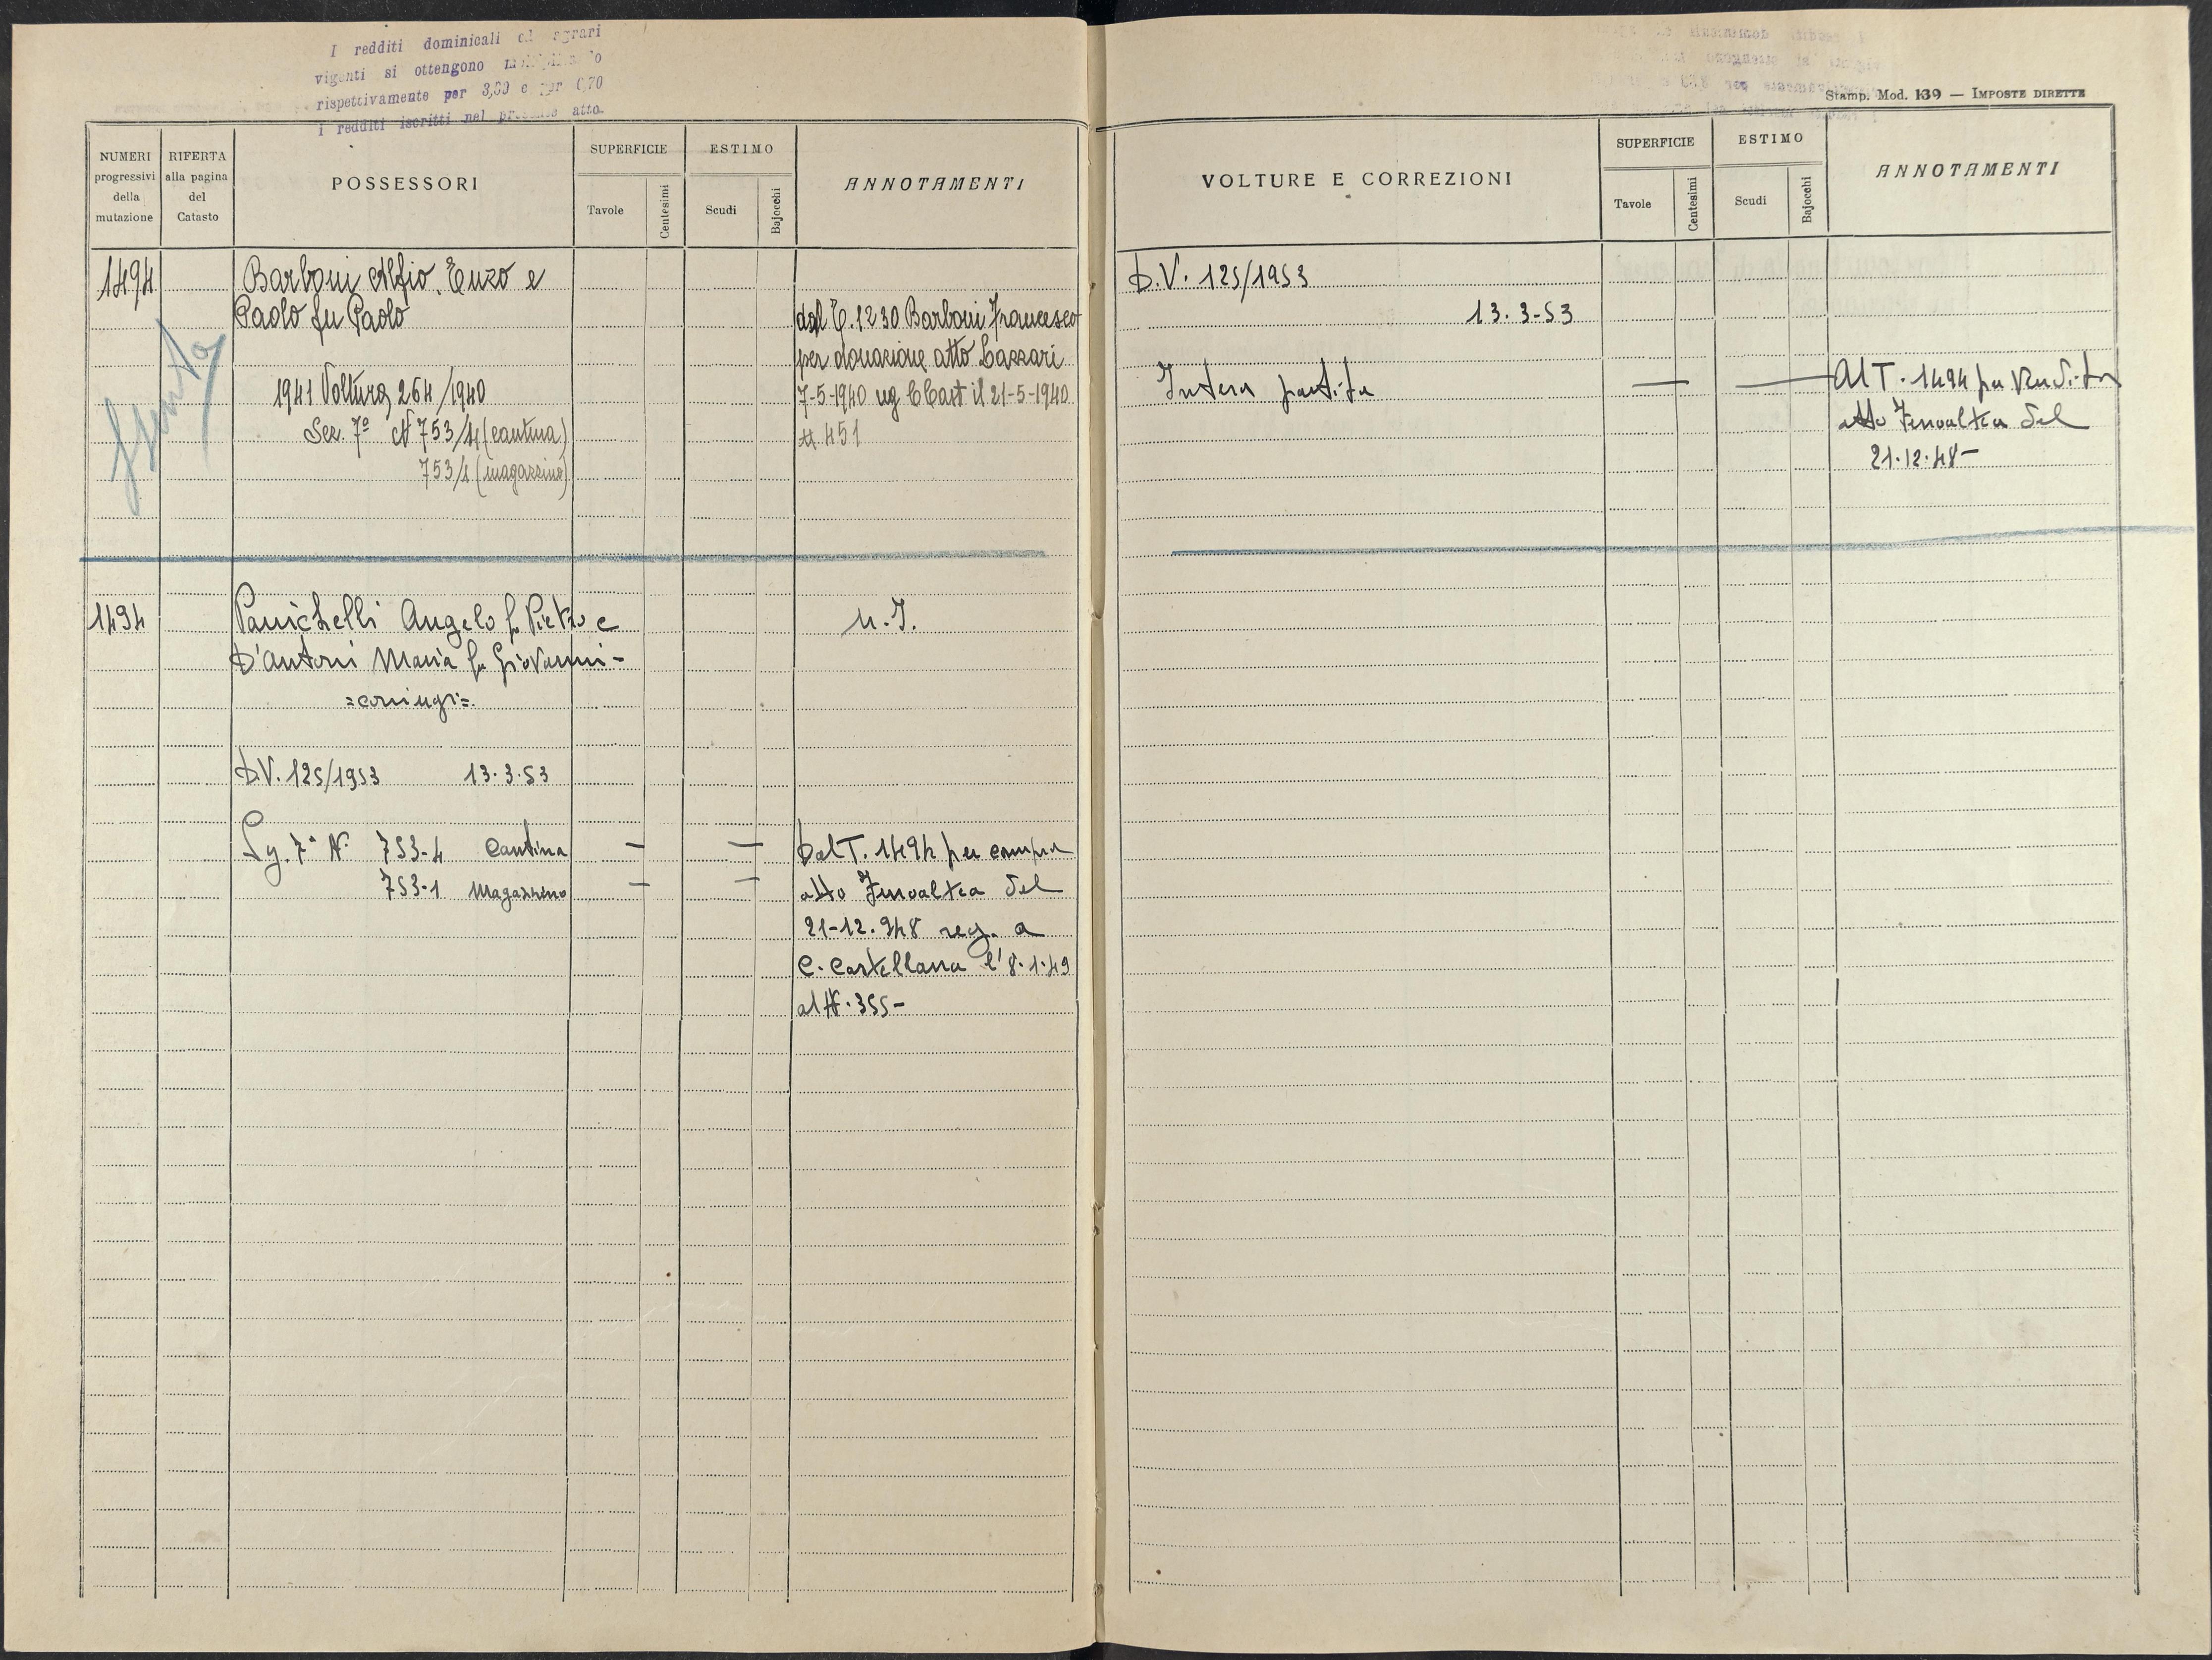 I redditi dominicali ed agrari
vigenti si ottengono moltiplicando
rispettivamente per 3,60 e per 0,70
i redditi iscritti nel presente atto
Stamp. Mod. 139 — IMPOSTE DIRETTE
NUMERI progressivi della mutazione
RIFERTA alla pagina del Catasto
POSSESSORI
SUPERFICIE
Tavole
Centesimi
ESTIMO
Scudi
Bajocchi
ANNOTAMENTI
VOLTURE E CORREZIONI
SUPERFICIE
Tavole
Centesimi
ESTIMO
Scudi
Bajocchi
ANNOTAMENTI
1494
Barboni Alfio, Enzo e
Paolo fu Paolo
1941 Voltura 264/1940
Sez. 7ª N 753/4 (cantina)
753/1 (magazzino)
dal T. 1230 Barboni Francesco
per donazione atto Lazzari
7-5-1940 reg C Cast il 21-5-1940
N. 451
D.V. 125/1953
13.3-53
Intera partita — —
Al T. 1494 per Vendita
atto Fenoaltea del
21.12.48-
1494
Panichelli Angelo fu Pietro e
D'Antoni Maria fu Giovanni-
=coniugi=
U.I.
D.V. 125/1953 13.3.53
7ª N. 753-4 Cantina — —
753-1 Magazzino — —
Dal T. 1494 per compra
atto Fenoaltea del
21-12.948 reg. a
C. Castellana l'8.1.49
al N. 355-